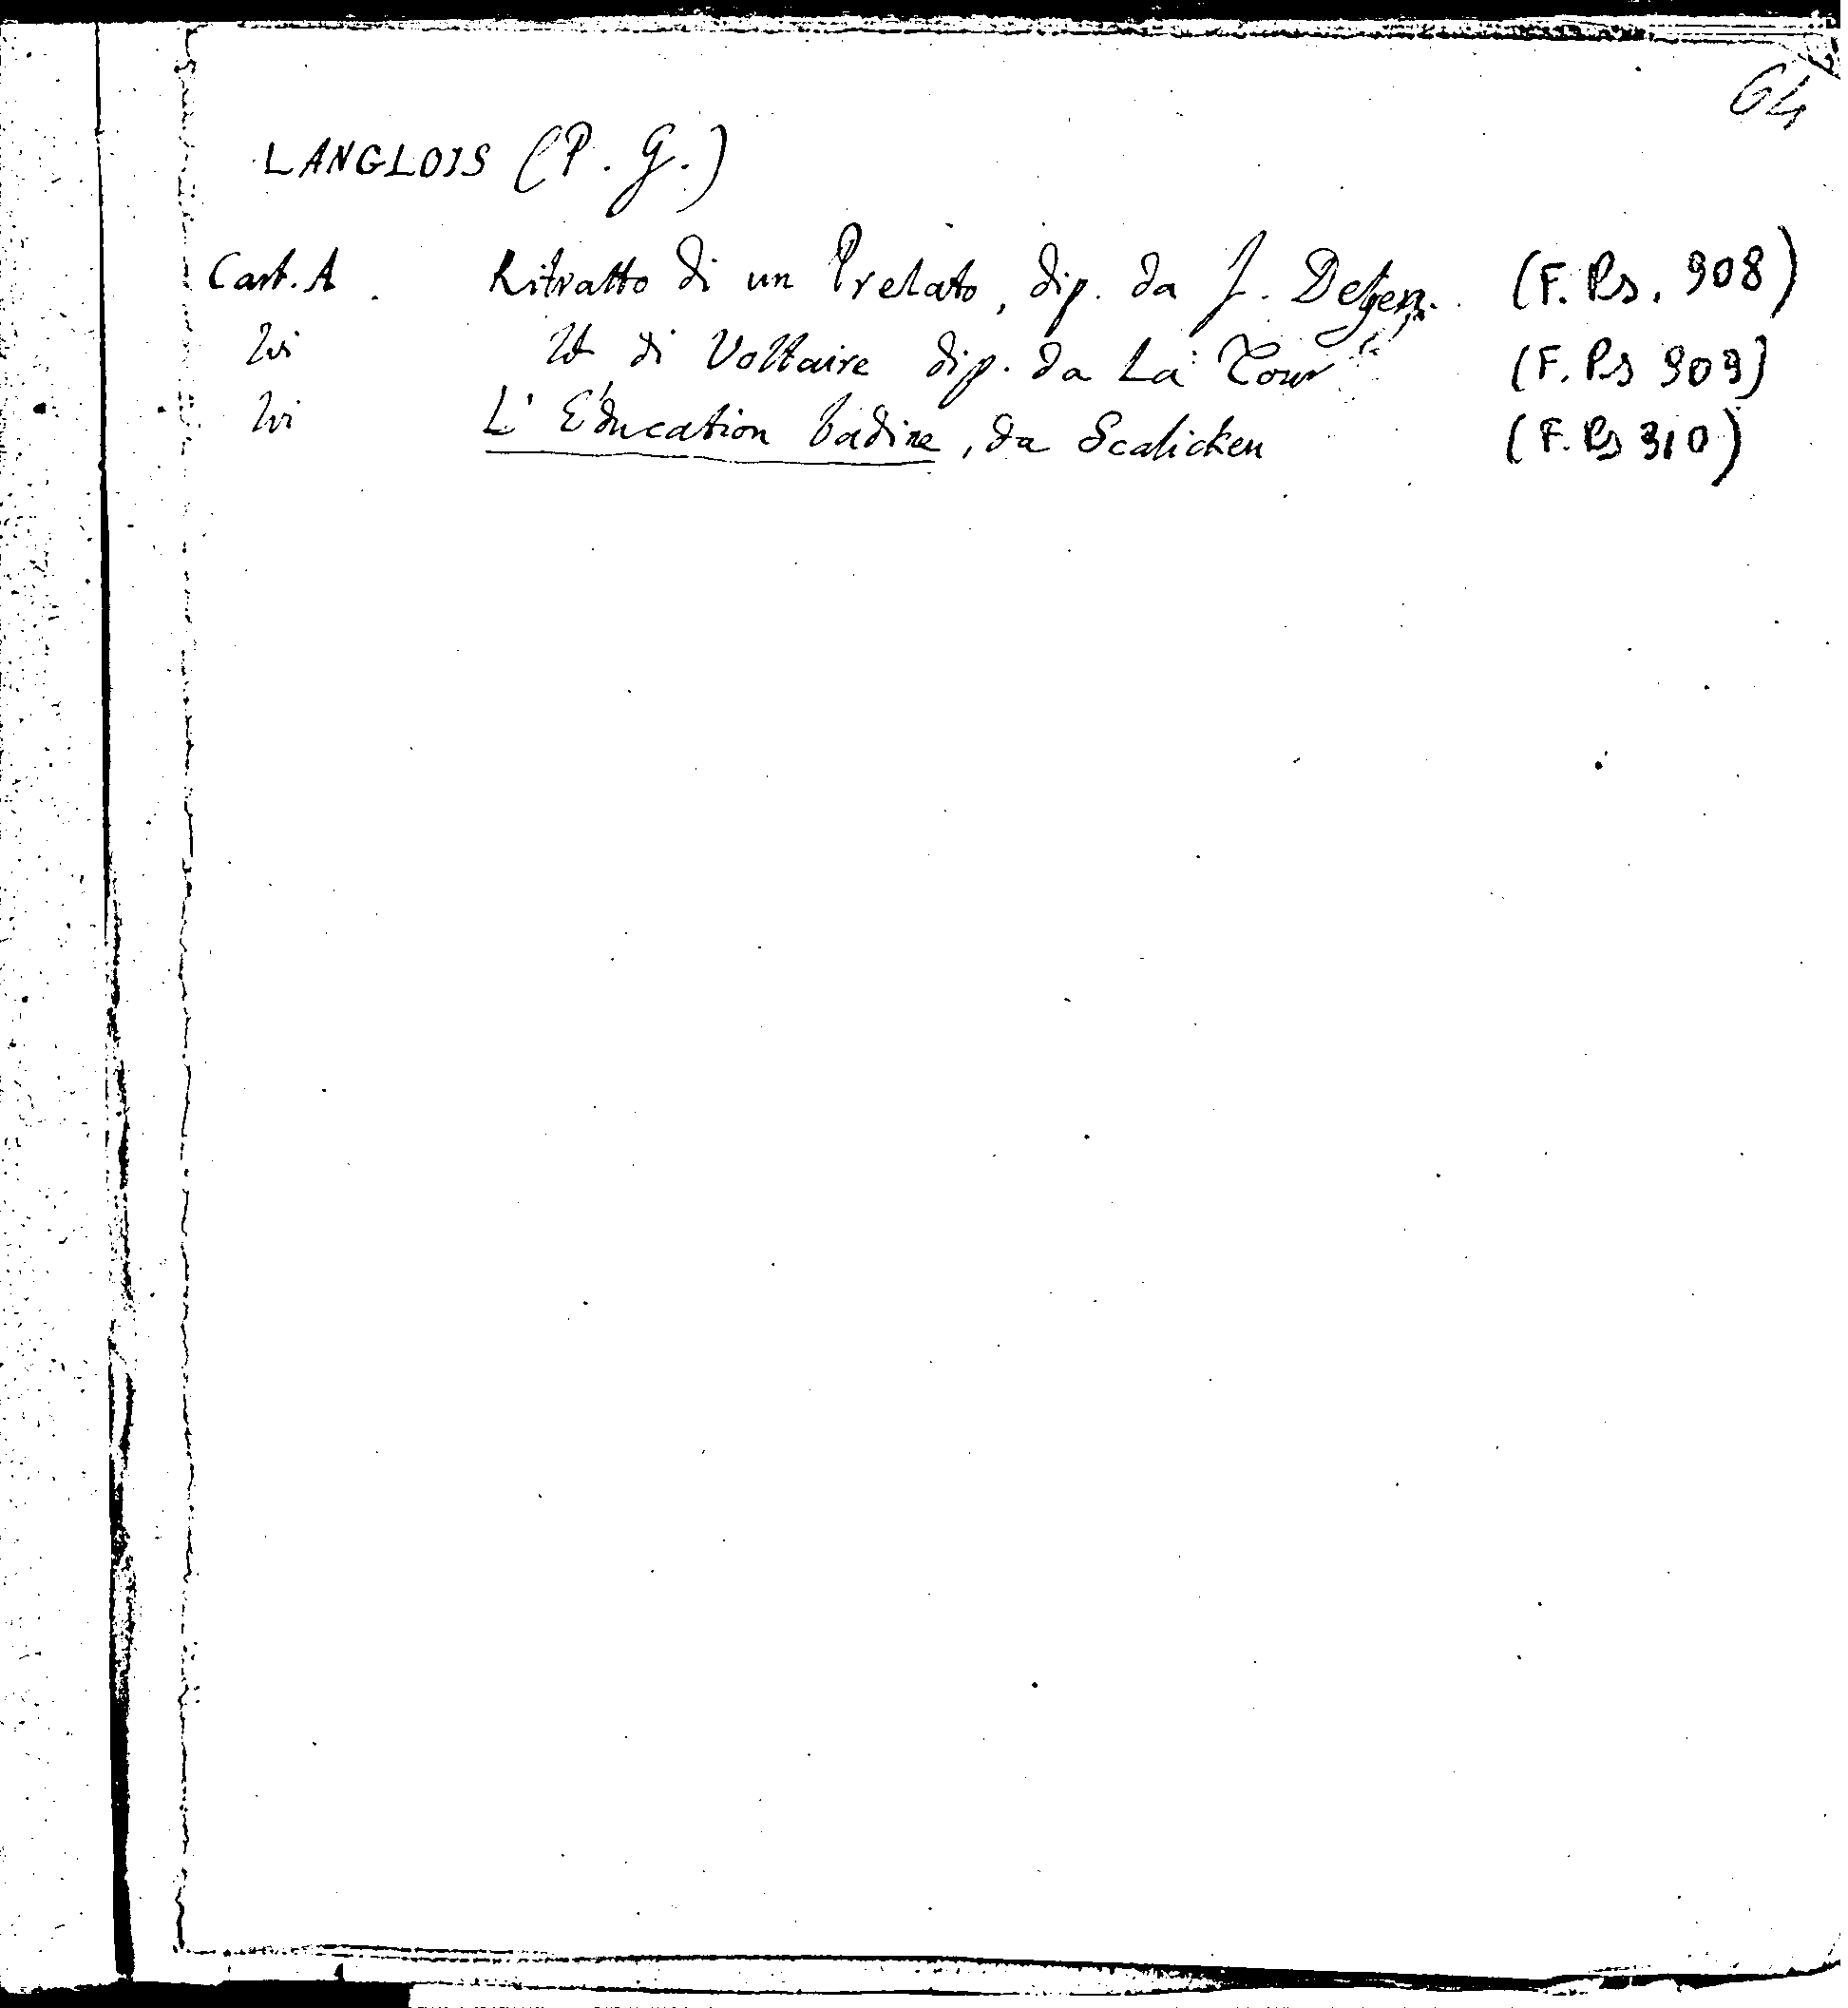 64
LANGLOIS (P. G.)
Cart. A. Ritratto di un Prelato, dip. da J. (F. Ps. 908)
Ivi Id di Voltaire dip. da La Tour (F. Ps 909)
Ivi L'Éducation badine, da Scalicken (F. Ps 910)